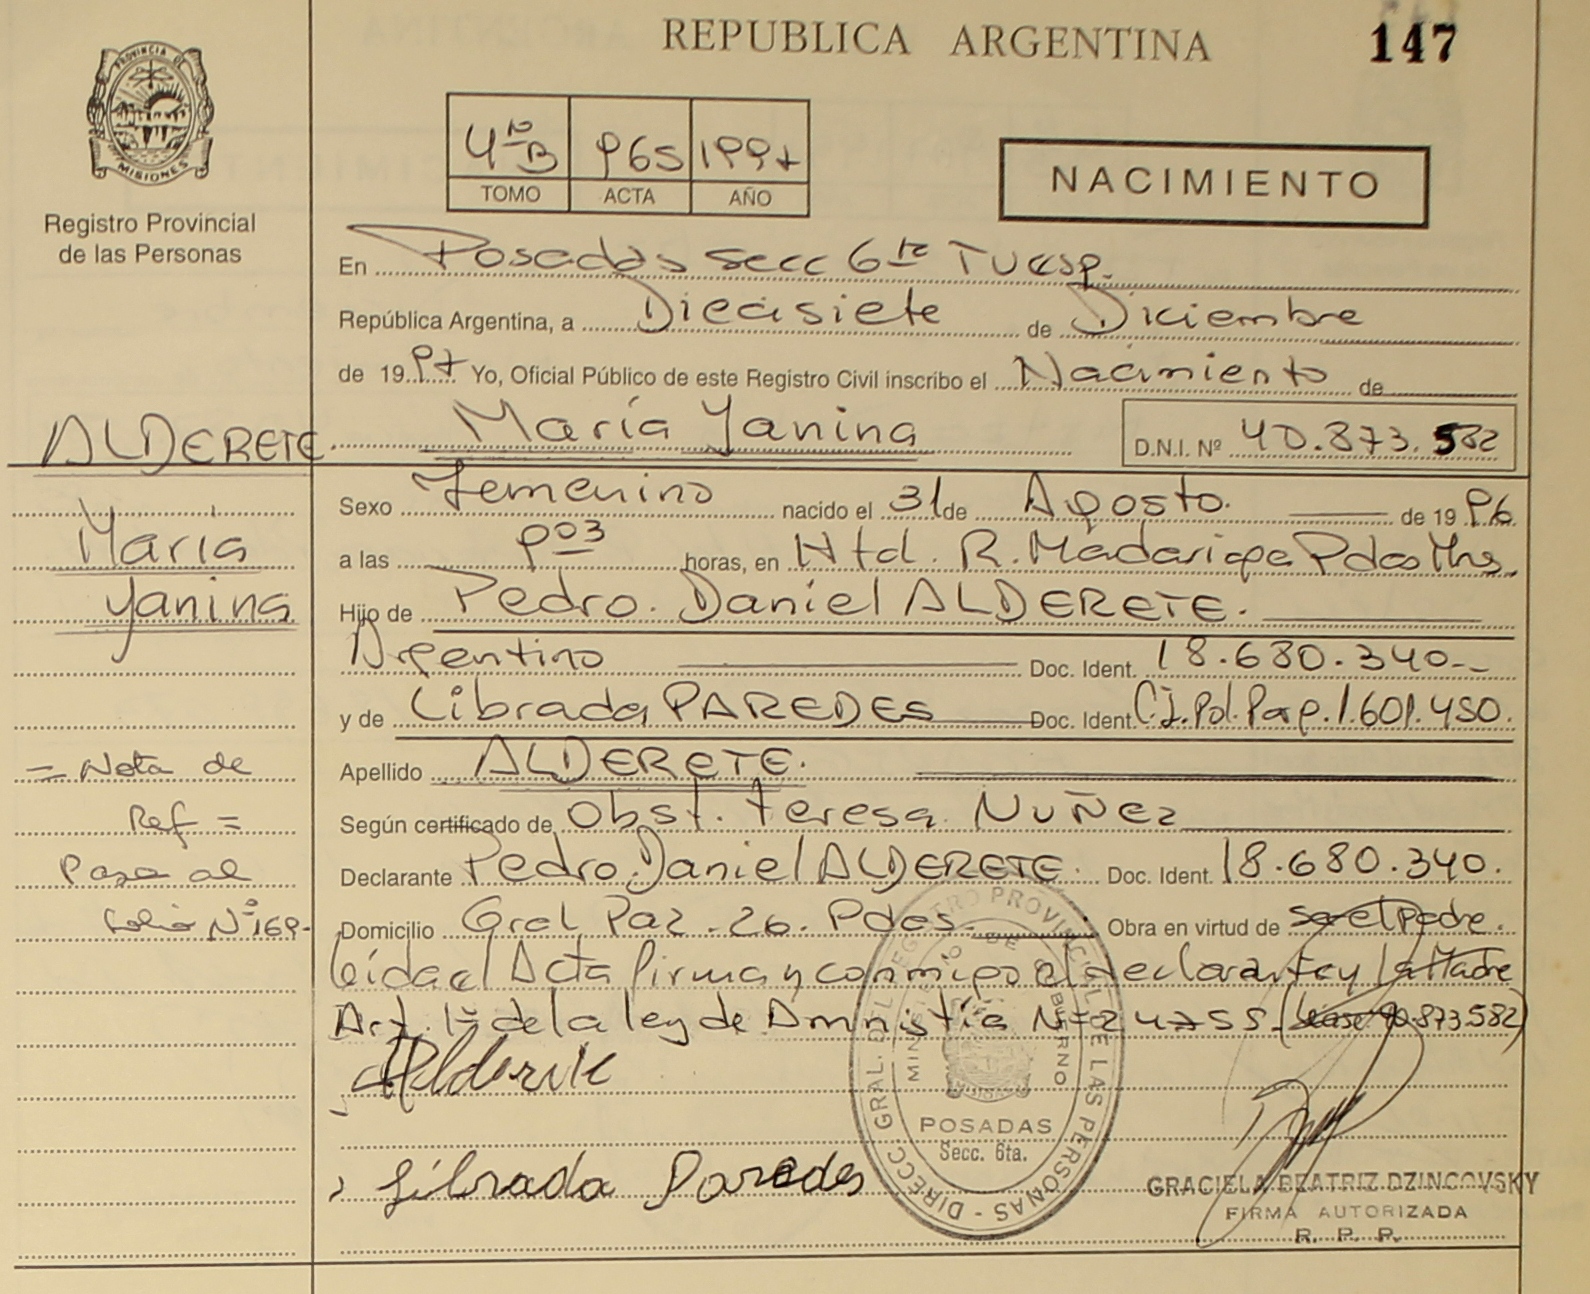 REPUBLICA ARGENTINA
147
PROVINCIA DE
MISIONES
Registro Provincial
de las Personas
4ºB 965 1997
TOMO ACTA AÑO
NACIMIENTO
En Posadas Secc 6ta
República Argentina, a Diecisiete de Diciembre
de 1997 Yo, Oficial Público de este Registro Civil inscribo el Nacimiento de
ALDERETE María Yanina D.N.I. Nº 40.873.582
María
Yanina
Sexo Femenino nacido el 31 de Agosto. de 1996
a las 9 03 horas, en Htal. R. Madariaga Pdas Mns.
Hijo de Pedro. Daniel ALDERETE.
Argentino Doc. Ident. 18.680.340.--
y de Librada PAREDES Doc. Ident. C.I. Pol. Par. 1.601.450.
Apellido ALDERETE.
Según certificado de Obst. Teresa NUÑEZ
Declarante Pedro. Daniel ALDERETE. Doc. Ident. 18.680.340.
Domicilio Gral Paz. 26. Pdas. Obra en virtud de ser el Padre.
Leida el Acta firman conmigo el declarante y la Madre
Art. 1º de la ley de Amnistía Nº 24755 (Léase 40.873.582)
= Nota de
Ref =
Pasa al
folio Nº 169-
Alderete
Librada Paredes
DIRECC. GRAL. DEL REGISTRO PROVINCIAL DE LAS PERSONAS -
MINISTERIO DE GOBIERNO
MISIONES
POSADAS
Secc. 6ta.
GRACIELA BEATRIZ DZINCOVSKY
FIRMA AUTORIZADA
R. P. P.